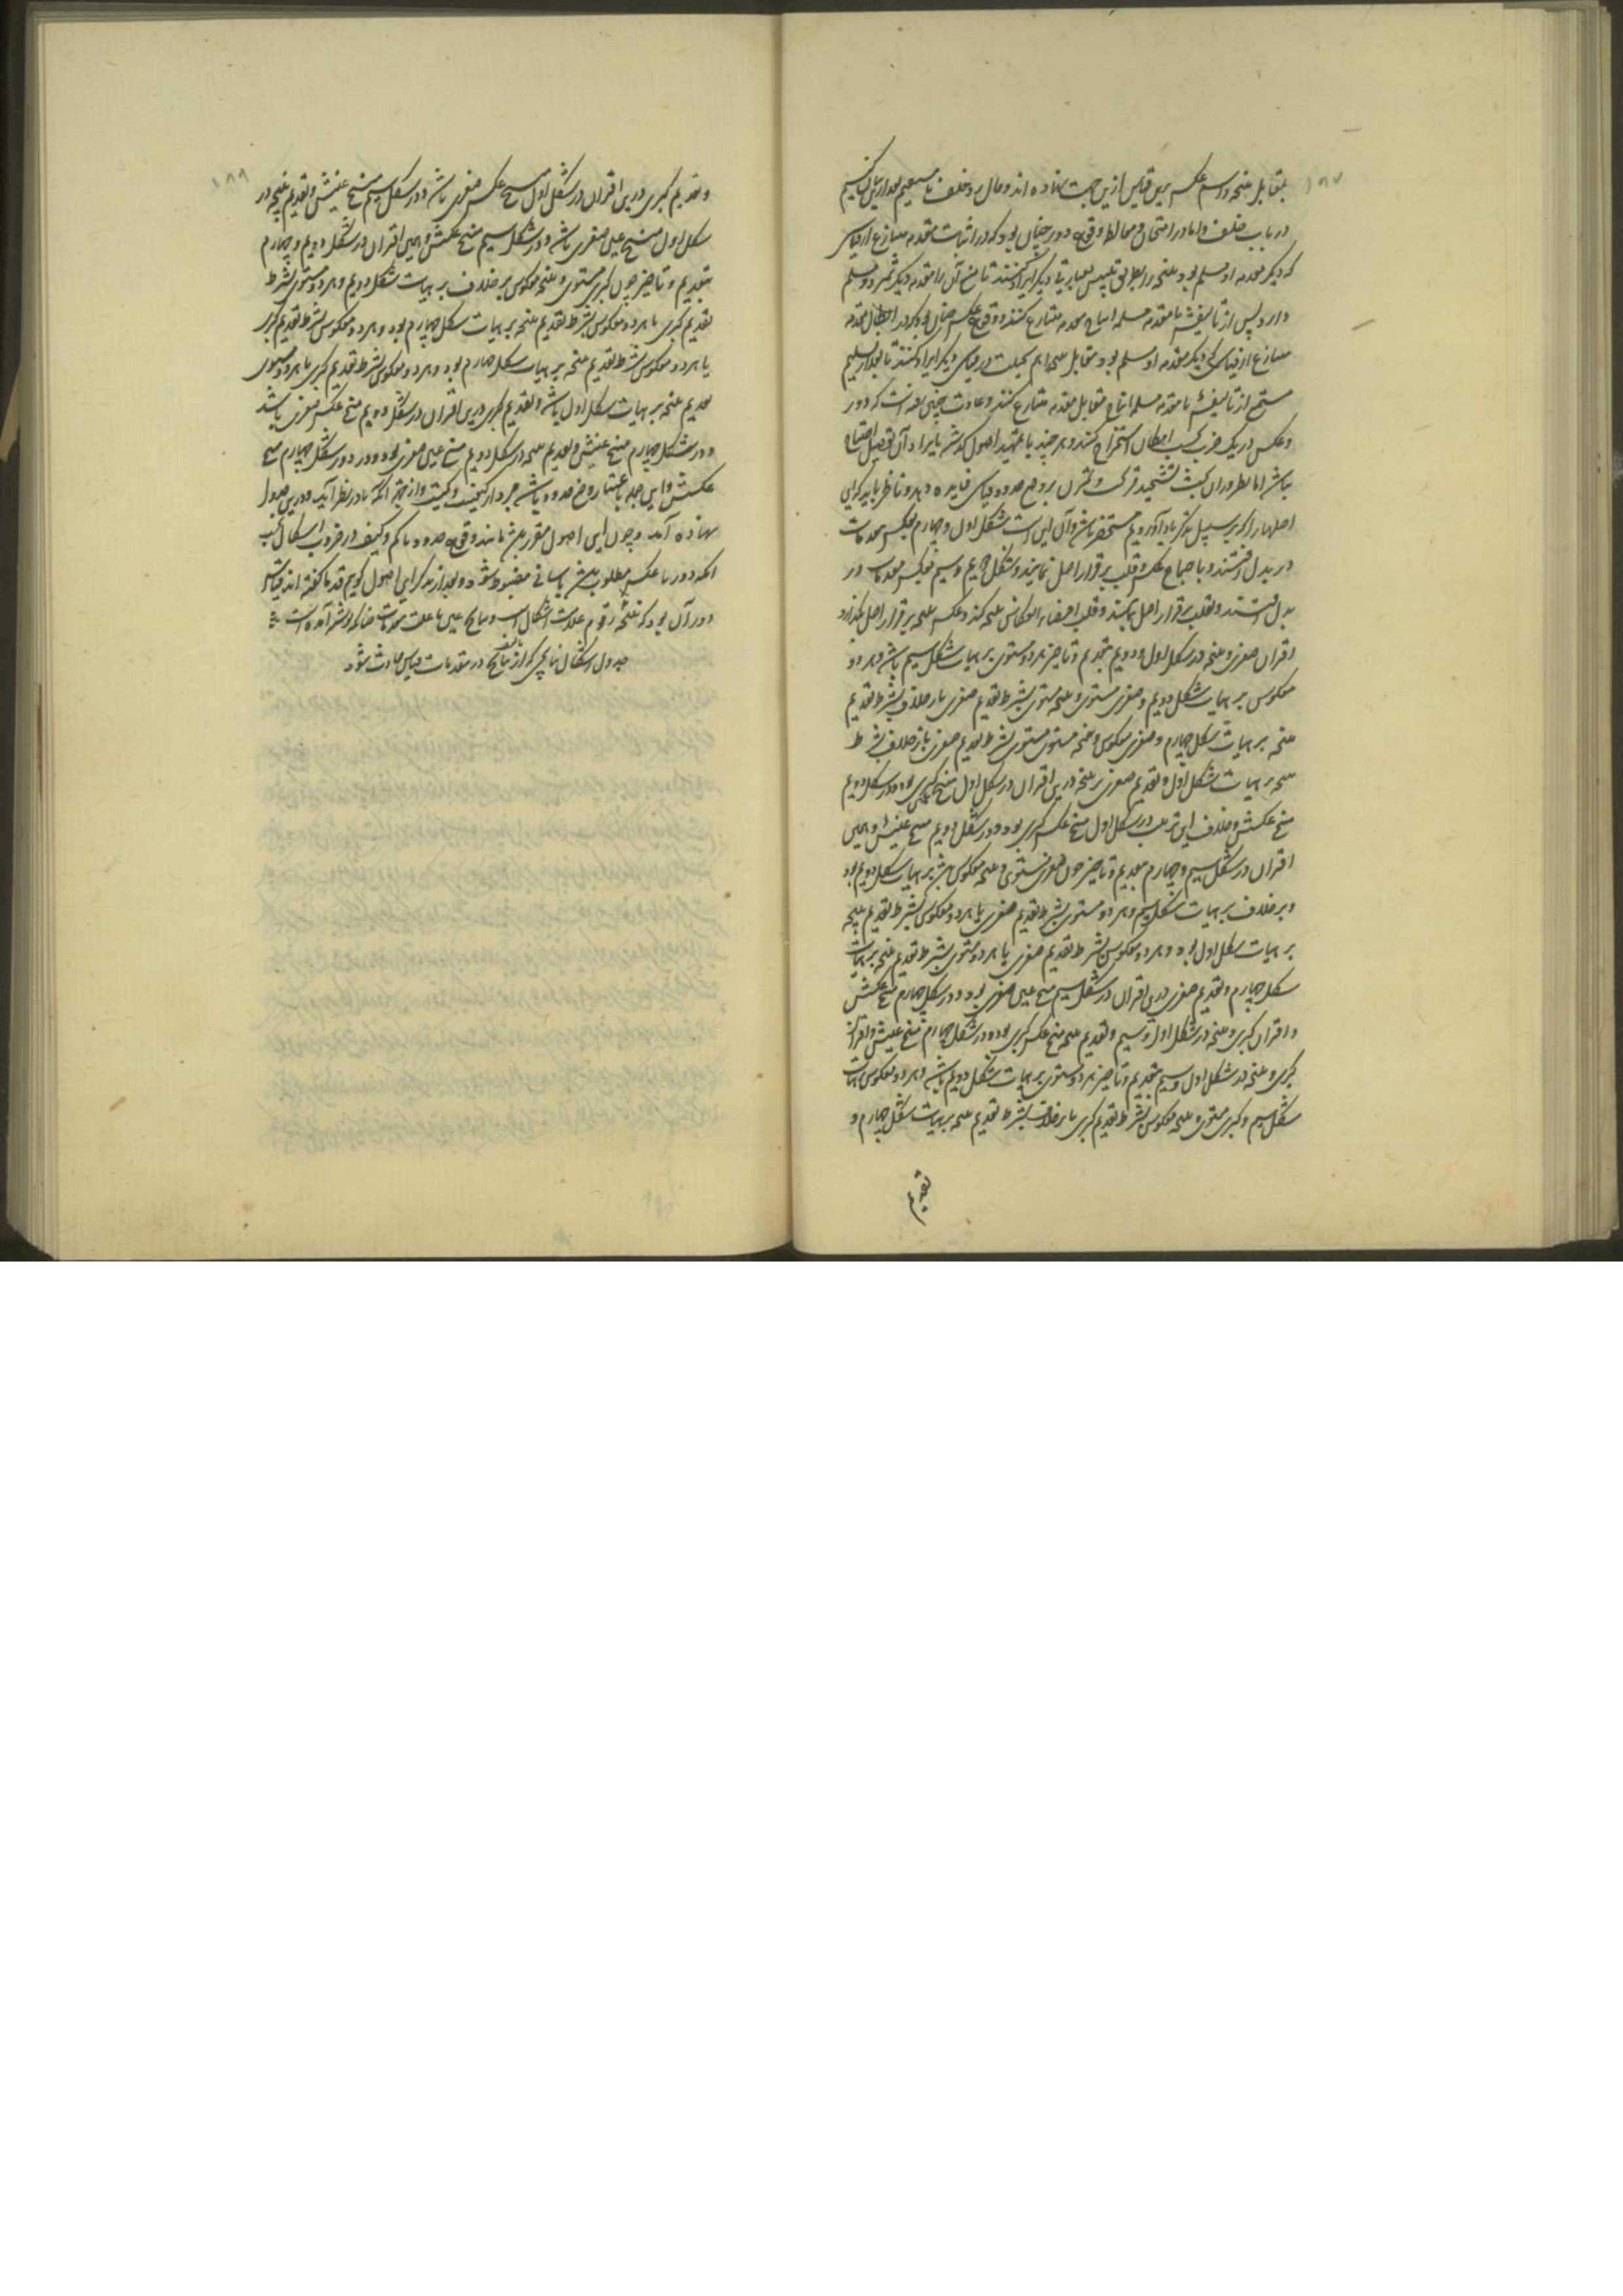 ۱۸۷
بمقابل نتیجه و اسم عکس برین قیاس ازین جهت نهاده اند و حال رد خلف با مستقیم بعد ازین بیان کنیم
در باب خلف و اما در امتحان و مغالطه وقوع دور چنان بود که در اثبات مقدمه متنازع از قیاسی
که دیگر مقدمه او مسلم بود نتیجه را بطریق تلبیس بعبارتی دیگر ایراد کنند تا خصم آن را مقدمه دیگر شمرد و مسلم
دارد پس از تالیفش با مقدمه مسلمه انتاج مقدمه متنازع کنند و وقوع عکس چنان بود که در ابطال مقدمه
متنازع از قیاسی که دیگر مقدمه او مسلم بود مقابل نتیجه را هم بحیلت در قیاسی دیگر ایراد کنند تا بعد از تسلیم
خصم از تالیفش با مقدمه مسلمه انتاج مقابل مقدمه متنازع کنند و عادت چنین رفته است که دور
و عکس در یک ضرب بحسب امکان استخراج کنند و هر چند با تمهید اصول گذشته بایراد آن تفصیل احتیاج
نباشد اما نظر در آن بحث تشحید قریحت و تمرن بر وضع حدود قیاسی فایده دهد و ناظر باید که این
اصلها را که بر سبیل تذکر یاد آوردیم مستحضر باشد و آن این است شکل اول و چهارم بعکس مقدمات
در بدل افتند و با اجتماع عکس و قلب برقرار اصل نمانند و شکل دویم و سیم بعکس مقدمات در
بدل افتند و بقلب برقرار اصل بمانند و قلب اقتضاء انعکاس نتیجه کند و عکس نتیجه برقرار اصل بگذارد
اقتران صغری و نتیجه در شکل اول و دویم بتقدیم و تاخیر هر دو مستوی بر هیات شکل سیم باشد و هر دو
معکوس بر هیات شکل دویم و صغری مستوی و نتیجه مستوی بشرط تقدیم صغری یا بر خلاف بشرط تقدیم
نتیجه بر هیات شکل چهارم و صغری معکوس و نتیجه مستوی بشرط تقدیم صغری یا بر خلاف بشرط
نتیجه بر هیات شکل اول و تقدیم صغری بر نتیجه درین اقتران در شکل اول منتج کبری بود و در شکل دویم
منتج عکسش و خلاف این ترتیب در شکل اول منتج عکس کبری بود و در شکل دویم منتج عینش و همین
اقتران در شکل سیم و چهارم بتقدیم و تاخیر چون صغری مستوی و نتیجه معکوس باشد بر هیات شکل دویم بود
و بر خلاف بر هیات شکل سیم و هر دو مستوی بشرط تقدیم صغری یا هر دو معکوس بشرط تقدیم نتیجه
بر هیات شکل اول بود و هر دو معکوس بشرط تقدیم صغری یا هر دو مستوی بشرط تقدیم نتیجه بر هیات
شکل چهارم و تقدیم صغری درین اقتران در شکل سیم منتج عین صغری بود و در شکل چهارم منتج عکسش
و اقتران کبری و نتیجه در شکل اول و سیم و تقدیم نتیجه منتج عکس کبری بود و در شکل چهارم منتج عینش و اقتران
کبری و نتیجه در شکل اول و سیم بتقدیم و تاخیر هر دو مستوی بر هیات شکل دویم باشد و هر دو معکوس بر هیات
شکل سیم و کبری مستوی و نتیجه معکوس بشرط تقدیم کبری یا بر خلاف بشرط تقدیم نتیجه بر هیات شکل چهارم و
تقدیم
۱۸۸
و تقدیم کبری درین اقتران در شکل اول منتج عکس صغری باشد و در شکل سیم منتج عینش و تقدیم نتیجه در
شکل اول منتج عین صغری باشد و در شکل سیم منتج عکسش و همین اقتران در شکل دویم و چهارم
بتقدیم و تاخیر چون کبری مستوی و نتیجه معکوس بر خلاف بر هیات شکل دویم و هر دو مستوی بشرط
تقدیم کبری یا هر دو معکوس بشرط تقدیم نتیجه بر هیات شکل چهارم بود و هر دو معکوس بشرط تقدیم کبری
یا هر دو معکوس بشرط تقدیم نتیجه بر هیات شکل چهارم بود و هر دو معکوس بشرط تقدیم کبری یا هر دو مستوی
تقدیم نتیجه بر هیات شکل اول باشد و تقدیم کبری درین اقتران در شکل دویم منتج عکس صغری باشد
و در شکل چهارم منتج عینش و تقدیم نتیجه در شکل دویم منتج عین صغری بود و در شکل چهارم منتج
عکسش و این جمله باعتبار وضع حدود باشد مجرد از کیفیت و کمیت و از جهت آنکه تا در نظر آید درین جدول
نهاده آمد و چون این اصول مقرر باشد وقوع حدود با کم و کیف در ضروب اشکال بحسب
آنکه دور یا عکس مطلوب باشد بآسانی مضبوط شود و بعد از تذکر این اصول گوییم قدما گفته اند قیاس
دور آن بود که نتیجه
جدول اشکال نتایجی که از تالیف نتایج در مقدمات قیاس حادث شود